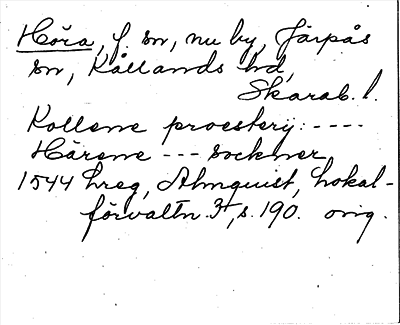 Höra, f. sn, nu by, Järpås
sn, Kållands hd,
Skarab. l.
Kollene proestery: ----
Härene --- sockner
1544 hreg, Almquist, Lokal-
förvaltn. 3, s. 190. orig.